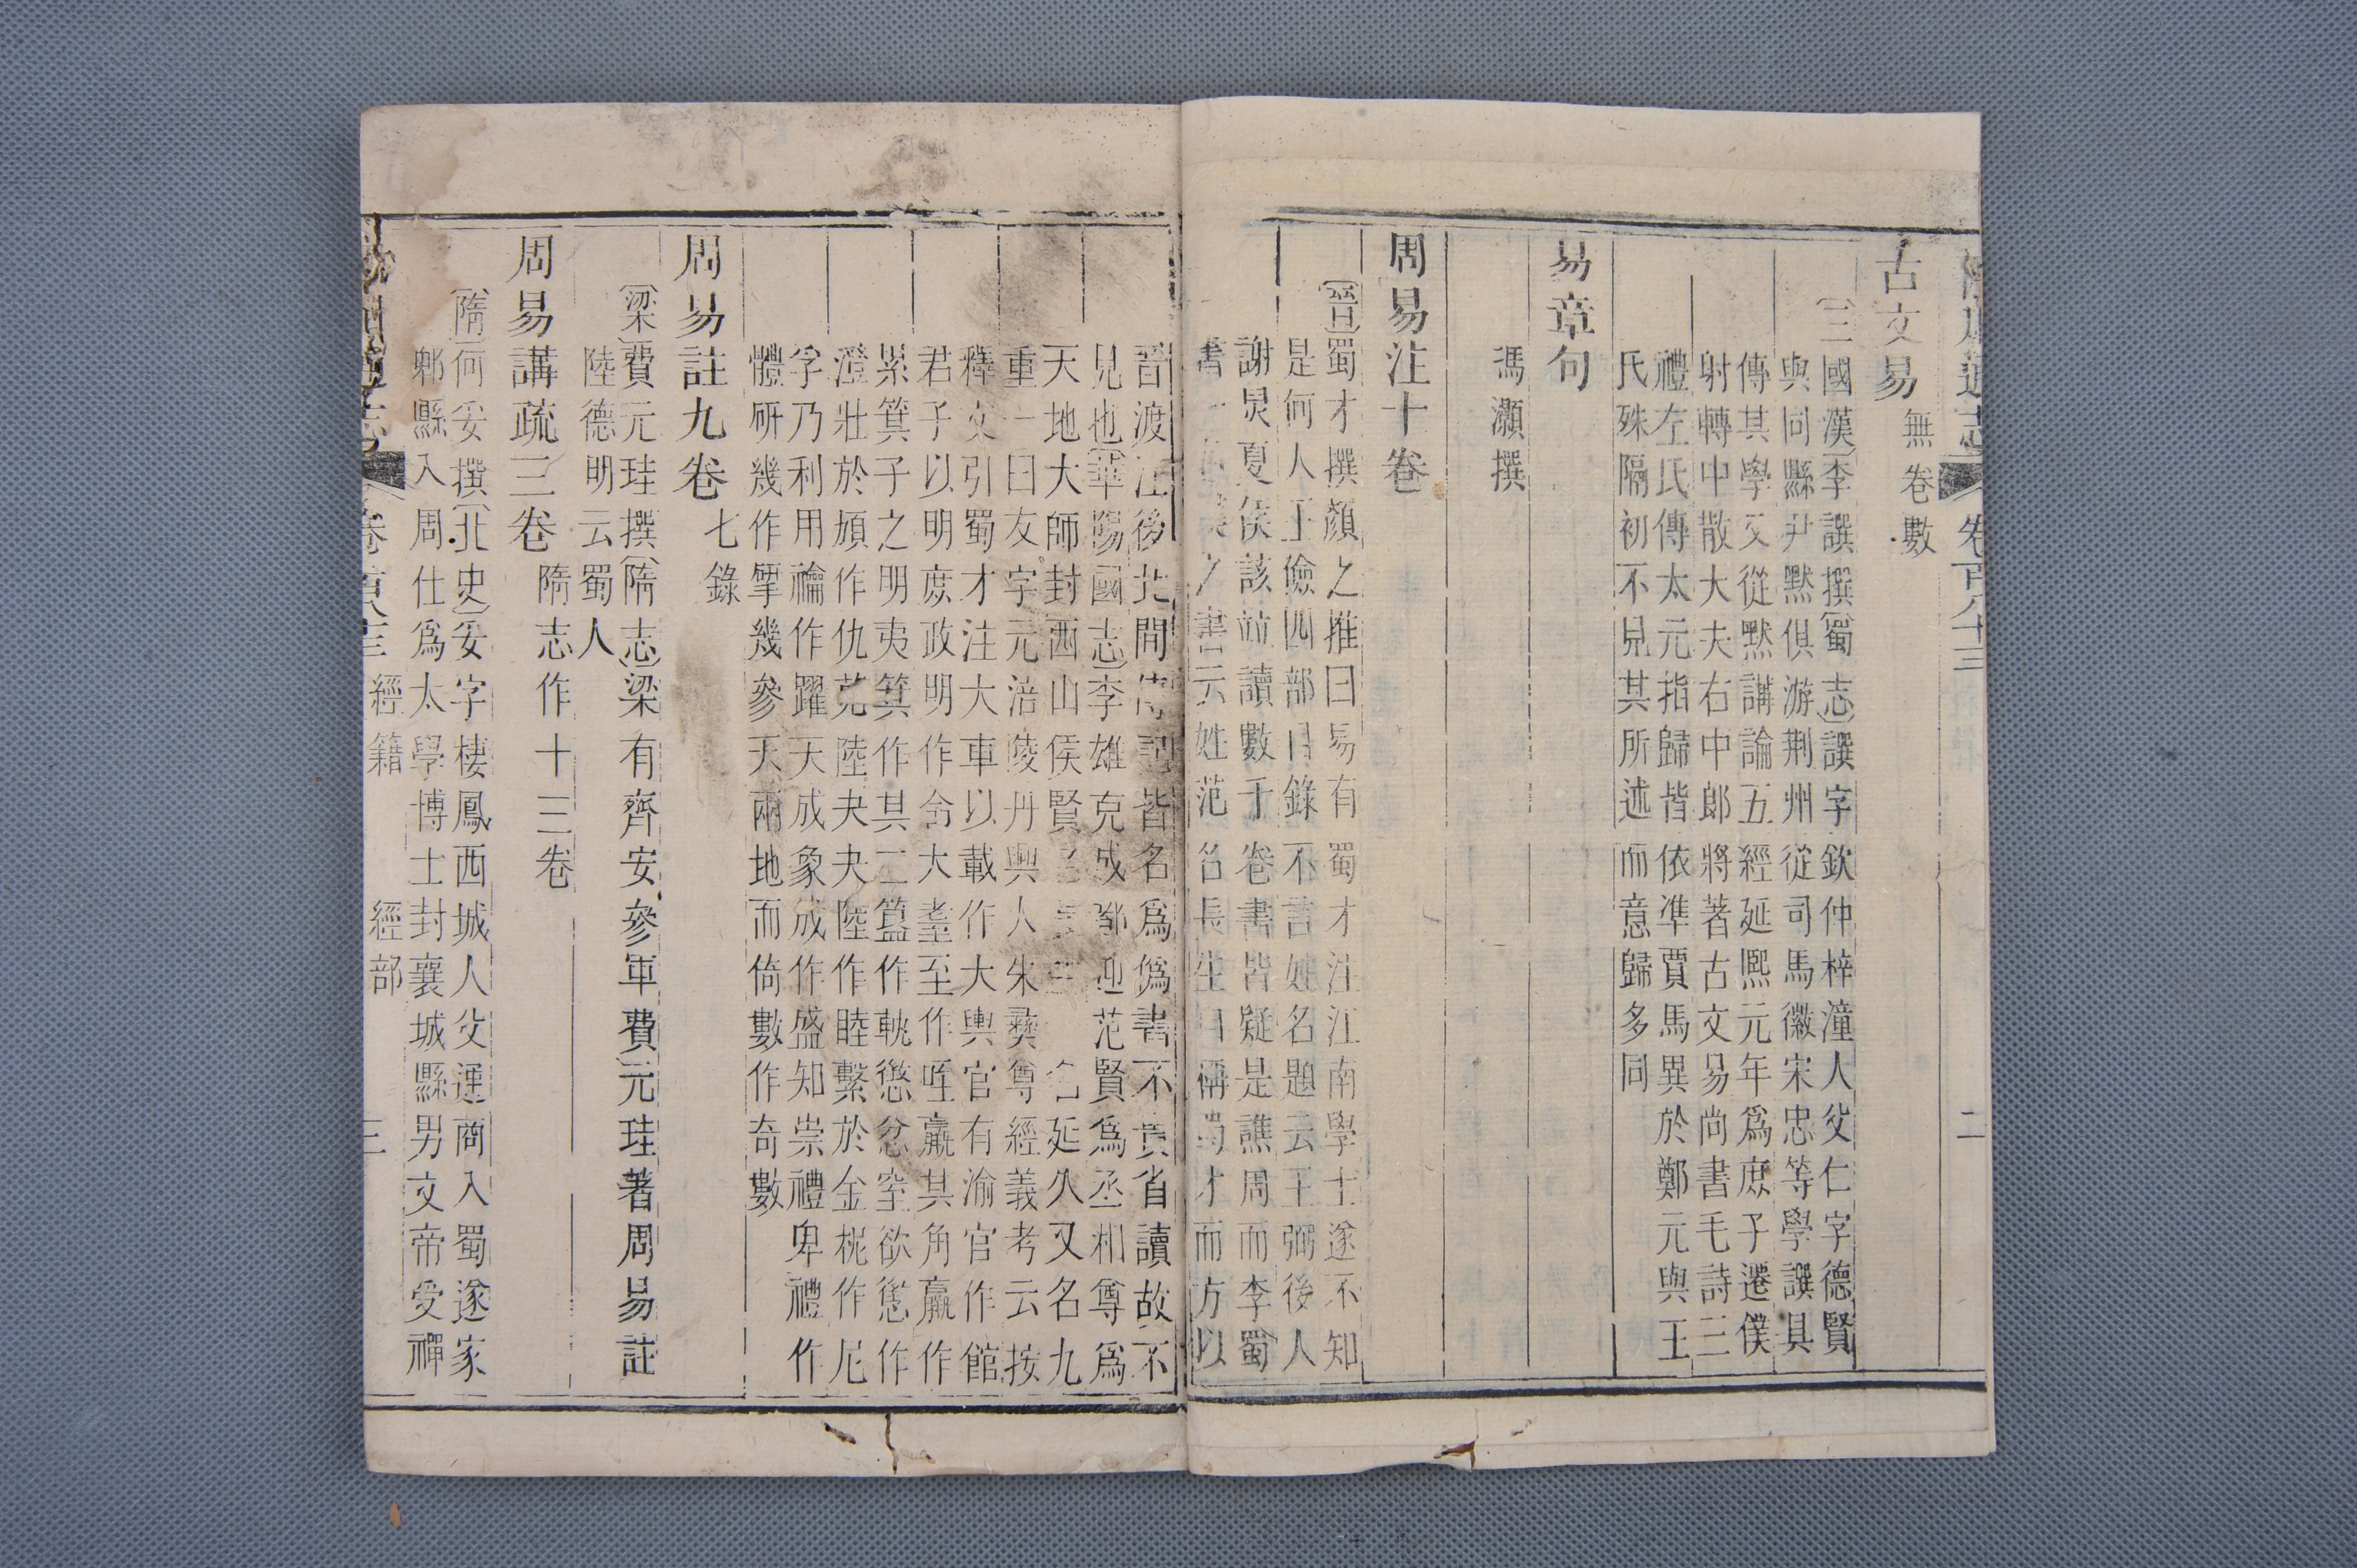 通志
卷百八十三
二
古文易無卷數
三國漢李譔撰蜀志譔字欽仲梓潼人父仁字德賢
與同縣尹默俱游荆州從司馬徽宋忠等學譔具
傳其學又從默講論五經延熙元年爲庶子遷僕
射轉中散大夫右中郎將著古文易尚書毛詩三
禮左氏傳太元指歸皆依準賈馬異於鄭元與王
氏殊隔初不見其所述而意歸多同
易章句
馮灝撰
周易注十卷
晉蜀才撰顏之推曰易有蜀才注江南學士遂不知
是何人王儉四部目錄不言姓名題云王弼後人
謝炅夏侯該並讀數千卷書皆疑是譙周而李蜀
書一之書云姓范名長生自稱蜀才而方以
晉渡江後北間傳記皆名爲僞書不貴省讀故不
見也華陽國志李雄克成都迎范賢爲丞相尊爲
天地大師封西山侯賢名延久又名九
重一曰友字元涪陵丹興人朱彝尊經義考云按
釋文引蜀才注大車以載作大輿官有渝官作館
君子以明庶政明作命大耋至作咥羸其角羸作
累箕子之明夷箕作其二簋作軌懲忿窒欲懲作
澄壯於頄作仇莧陸夬夬陸作睦繫於金柅作尼
孚乃利用禴作躍天成象成作盛知崇禮卑禮作
體研幾作揅幾參天兩地而倚數作奇數
周易註九卷七錄
梁費元珪撰隋志梁有齊安參軍費元珪著周易註
陸德明云蜀人
周易講疏三卷隋志作十三卷
隋何妥撰北史妥字棲鳳西城人父運商入蜀遂家
郫縣入周仕爲太學博士封襄城縣男文帝受禪
通志
卷百八十三 經籍 經部
三